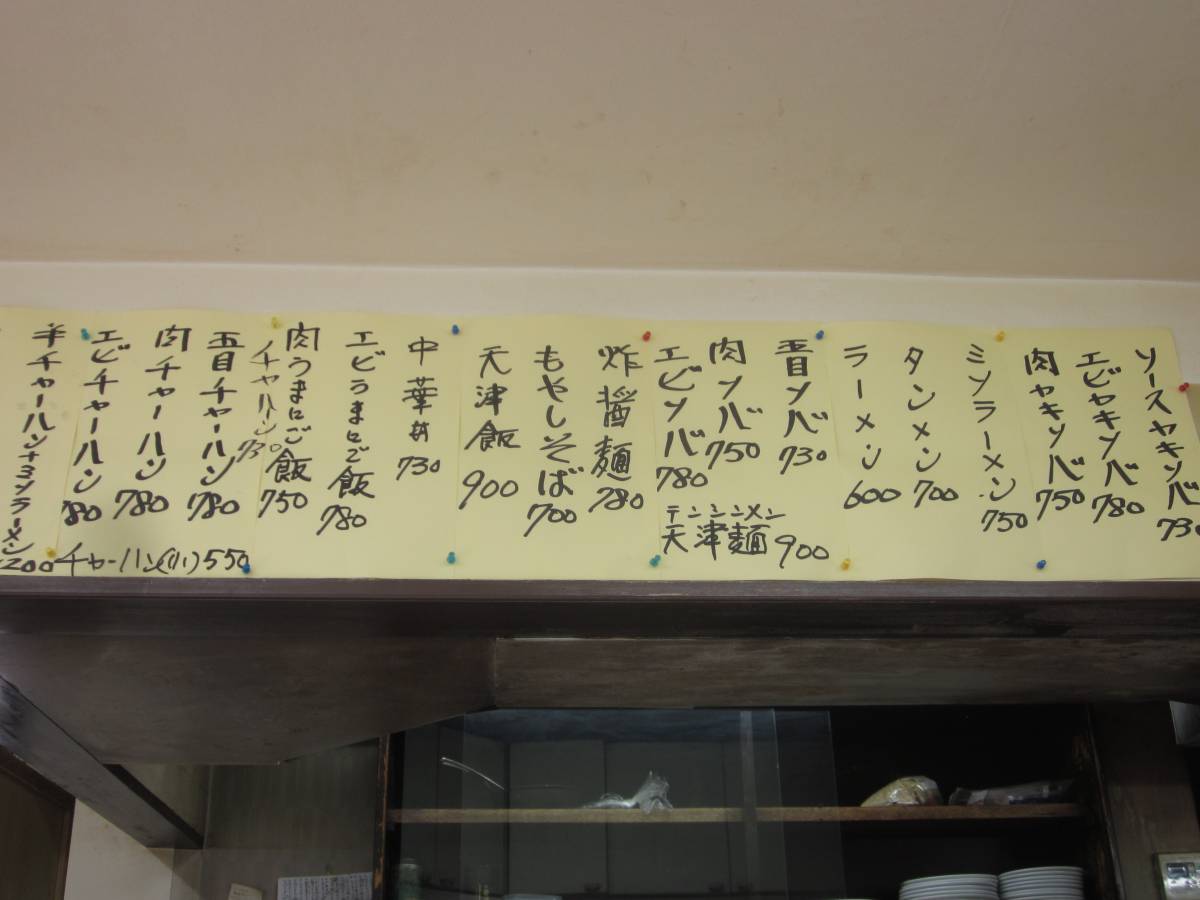 ソースヤキソバ
730
エビヤキソバ
780
肉ヤキソバ
750
ミソラーメン
750
タンメン
700
ラーメン
600
五目ソバ
730
肉ソバ
750
エビソバ
780
テンシンメン
天津麺 900
炸醤麺
780
もやしそば
700
天津飯
900
中華丼
730
エビうまにご飯
780
肉うまにご飯
750
チャーハン
730
五目チャーハン
780
肉チャーハン
780
エビチャーハン
780
半チャーハン+ミソラーメン
チャーハン(小) 550